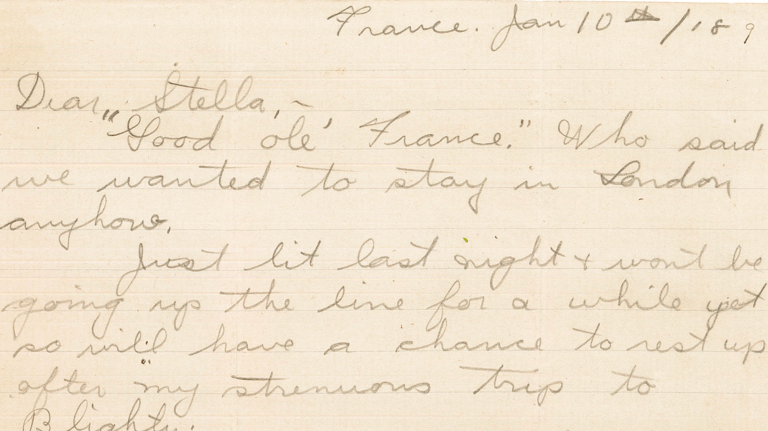 France. Jan 10th/18 9
Dear Stella, –
"Good ole' France." Who said
we wanted to stay in London
anyhow.
Just lit last night & won't be
going up the line for a while yet
so will have a chance to rest up
after my strenuous trip to
Blighty.